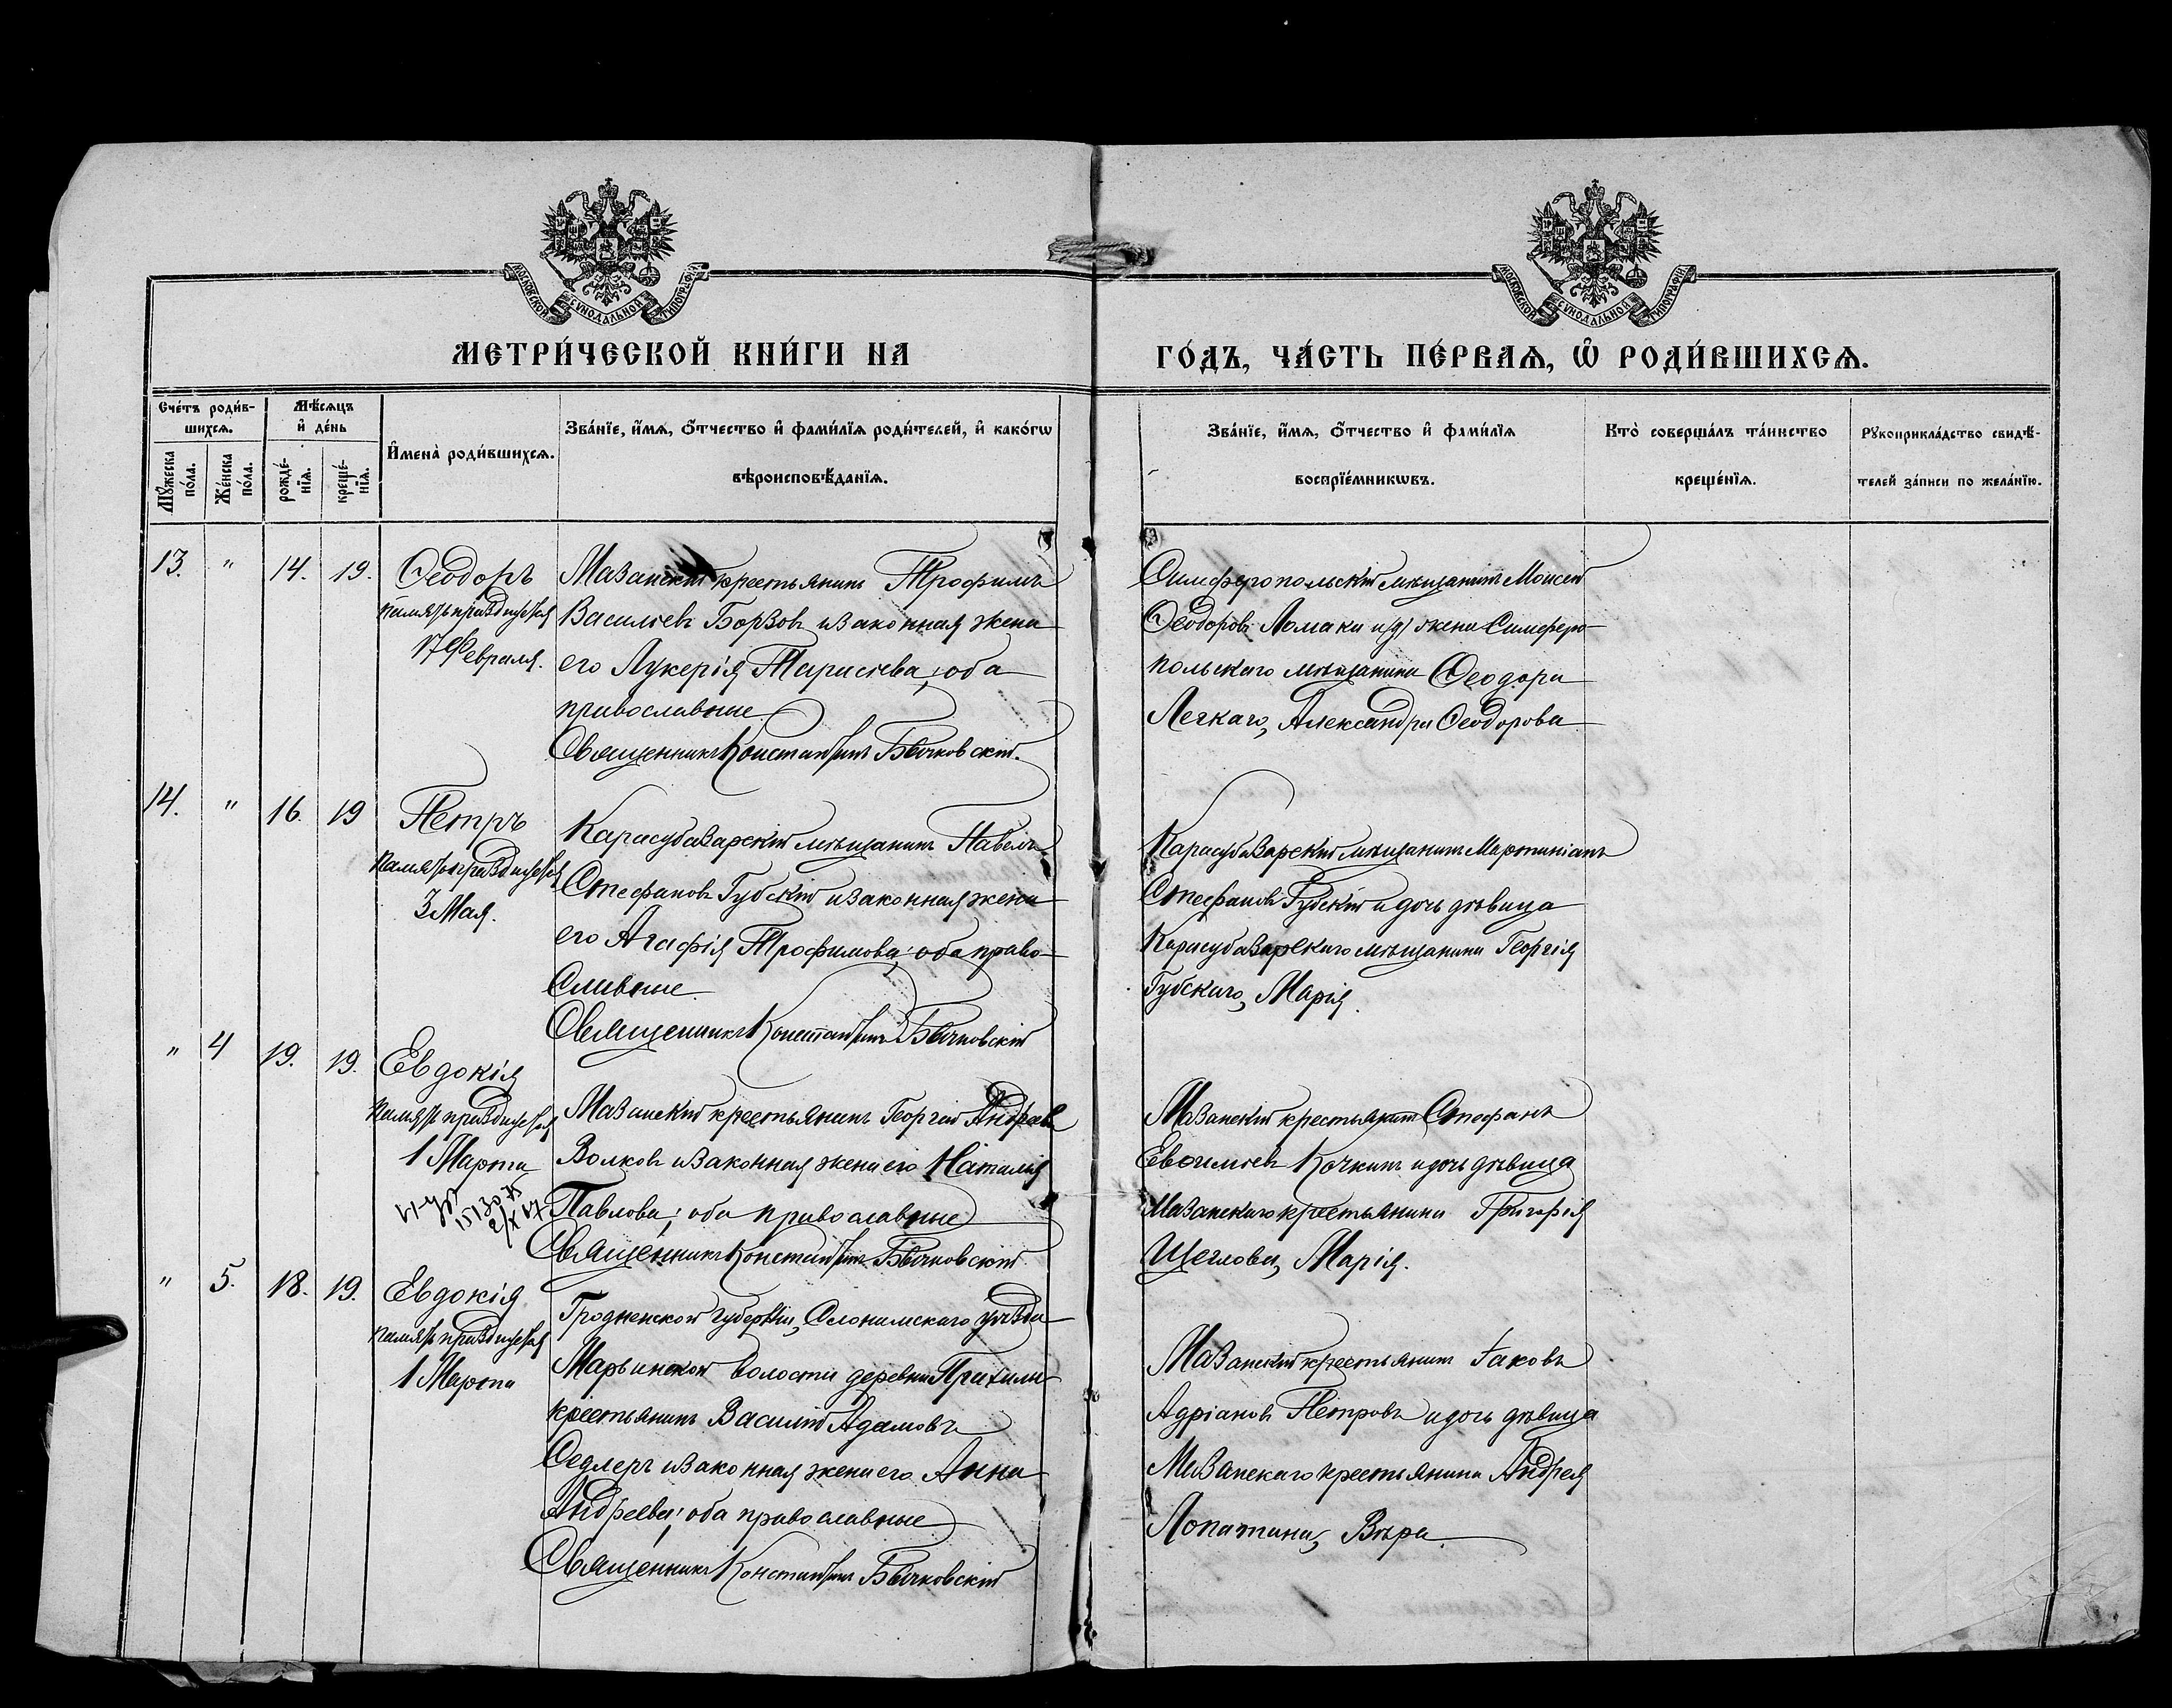 МОСКОВСКОЙ СѴНОДАЛЬНОЙ ТИПОГРАФІИ
МОСКОВСКОЙ СѴНОДАЛЬНОЙ ТИПОГРАФІИ
МЕТРИ́ЧЕСКОЙ КНИ́ГИ НА
ГО́ДЪ, ЧА́СТЬ ПЕ́РВАѦ, Ѡ҆ РОДИ́ВШИХСѦ.
Сче́тъ роди́в-
шихсѧ.
Мꙋ́жеска по́ла.
Же́нска по́ла.
Мѣ́сѧцъ
и҆ де́нь
рожде́-
нїѧ.
креще́-
нїѧ.
И҆мена̀ роди́вшихсѧ.
Зва́нїе, и҆́мѧ, ѻ҆́тчество и҆ фами́лїѧ роди́телей, и҆ како́гѡ
вѣроисповѣ́данїѧ.
Зва́нїе, и҆́мѧ, ѻ҆́тчество и҆ фами́лїѧ
воспрїе́мникѡвъ.
Кто̀ соверша́лъ та́инство
креще́нїѧ.
Рꙋкоприкла́дство свидѣ́-
телей за́писи по жела́нїю.
13. " 14. 19.
Ѳеодоръ
память празднуется
17 Февраля.
Мазанскій крестьянинъ Трофимъ
Васильевъ Борзовъ и законная жена
его Лукерія Тарисіева; оба
православные
Священникъ Константинъ Бычковскій.
Симферопольскій мѣщанинъ Моисей
Ѳеодоровъ Ломака и жена Симферо-
польскаго мѣщанина Ѳеодора
Легкаго, Александра Ѳеодорова
14. " 16. 19
Петръ
память празднуется
3 Мая.
Карасубазарскій мѣщанинъ Павелъ
Стефановъ Губскій и законная жена
его Агафія Трофимова; оба право-
славные
Священникъ Константинъ Бычковскій
Карасубазарскій мѣщанинъ Мартиніанъ
Стефановъ Губскій и дочь дѣвица
Карасубазарскаго мѣщанина Георгія
Губскаго, Марія.
" 4 19. 19.
Евдокія
память празднуется
1 Марта
Мазанскій крестьянинъ Георгій Андреевъ
Волковъ и законная жена его Наталія
Павлова; оба православные
Священникъ Константинъ Бычковскій
Мазанскій крестьянинъ Стефанъ
Евѳиміевъ Кочкинъ и дочь дѣвица
Мазанскаго крестьянина Григорія
Щеглова, Марія.
" 5. 18. 19.
Евдокія
память празднуется
1 Марта
Гродненской губерніи, Слонимскаго уѣзда
Марьинской волости деревни
крестьянинъ Василій Адамовъ
Седлеръ и законная жена его Анна
Андреева; оба православные
Священникъ Константинъ Бычковскій
Мазанскій крестьянинъ Іаковъ
Адріановъ Петровъ и дочь дѣвица
Мазанскаго крестьянина Андрея
Лопатина, Вѣра